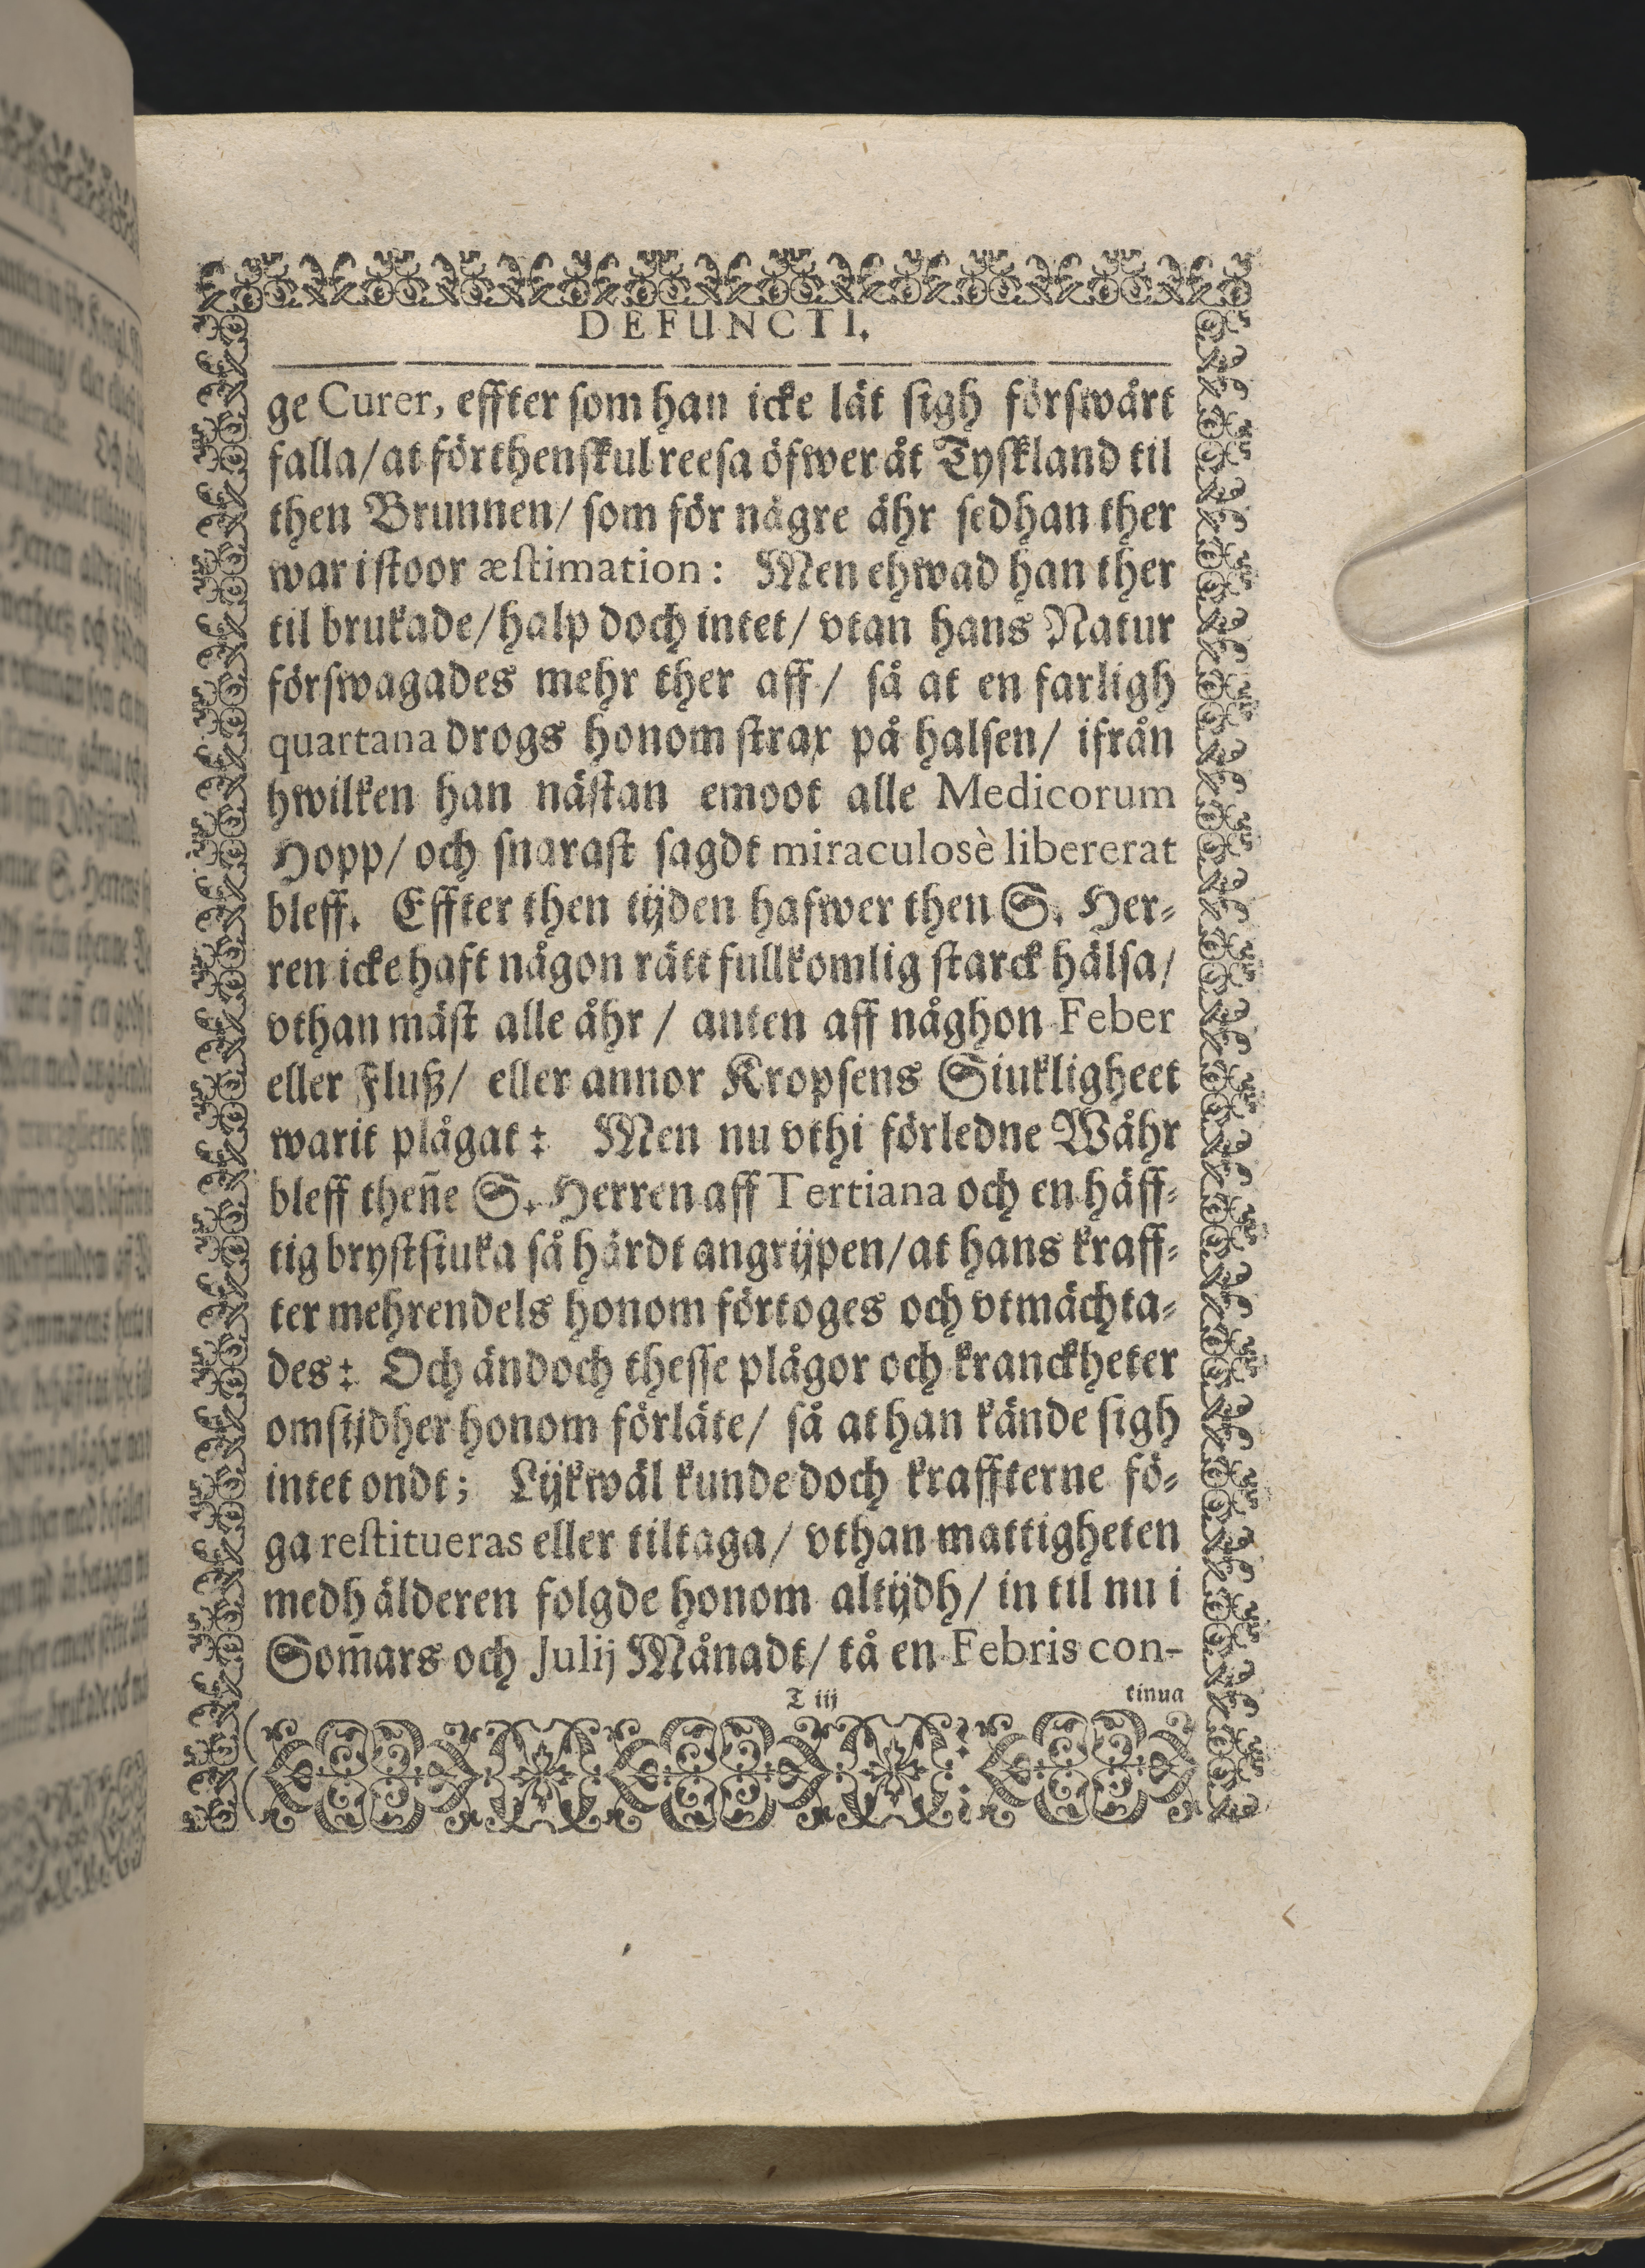 DEFUNCTI.
ge Curer, effter som han icke lät sigh förswårt
falla/at förthenskul reesa öfwer åt Tyskland til
then Brunnen/ som för någre åhr sedhan ther
war i stoor æstimation: Men ehwad han ther
til brukade/halp doch intet/ vtan hans Natur
förswagades mehr ther aff/ så at en farligh
quartana drogs honom strax på halsen/ ifrån
hwilken han nästan emoot alle Medicorum
Hopp/ och snarast sagdt miraculosè libererat
bleff. Effter then tijden hafwer then S. Her-
ren icke haft någon rätt fullkomlig starck hälsa/
vthan mäst alle åhr / anten aff någhon Feber
eller Fluß/ eller annor Kropsens Siukligheet
warit plågat: Men nu vthi förledne Wåhr
bleff theñe S. Herren aff Tertiana och en häff-
tig bryststuka så hårdt angrijpen/at hans kraff-
ter mehrendels honom förtoges och vtmächta-
des: Och ändoch thesse plågor och kranckheter
omstjdher honom förläte/ så at han kände sigh
intet ondt; Lijkwäl kunde doch kraffterne fö-
ga restitueras eller tiltaga/ vthan mattigheten
medh ålderen folgde honom altijdh/ in til nu i
Som̃ars och Julij Månadt/ tå en Febris con-
T iij tinua